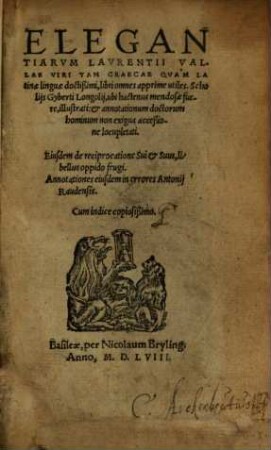 ELEGAN
TIARVM LAVRENTII VAL-
LAE VIRI TAM GRAECAE QVAM LA
tinæ linguæ doctißimi, libri omnes apprime utiles. Scho
lijs Gyberti Longolij, ubi hactenus mendosæ fue-
re, illustrati: & annotationum doctorum
hominum non exigua accessio-
ne locupletati.
Eiusdem de reciprocatione Sui & Suus, li-
bellus oppido frugi.
Annotationes eiusdem in errores Antonij
Raudensis.
Cum indice copiosißimo.
Basileæ, per Nicolaum Bryling.
Anno, M. D. LVIII.
C.